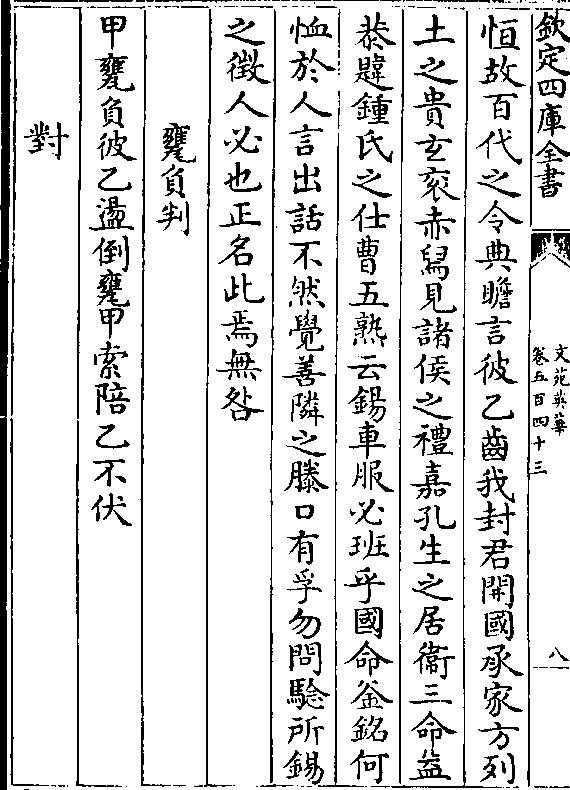 欽定四庫全書
文苑英華
卷五百四十三
八
恒故百代之令典瞻言彼乙齒我封君開國承家方列
土之貴玄衮赤舄見諸侯之禮嘉孔生之居衛三命益
恭韙鍾氏之仕曹五熟云錫車服必班乎國命釜銘何
恤於人言出話不然覺善隣之滕口有孚勿問驗所錫
之徵人必也正名此焉無咎
甕負判
甲甕負彼乙盪倒甕甲索陪乙不伏
對